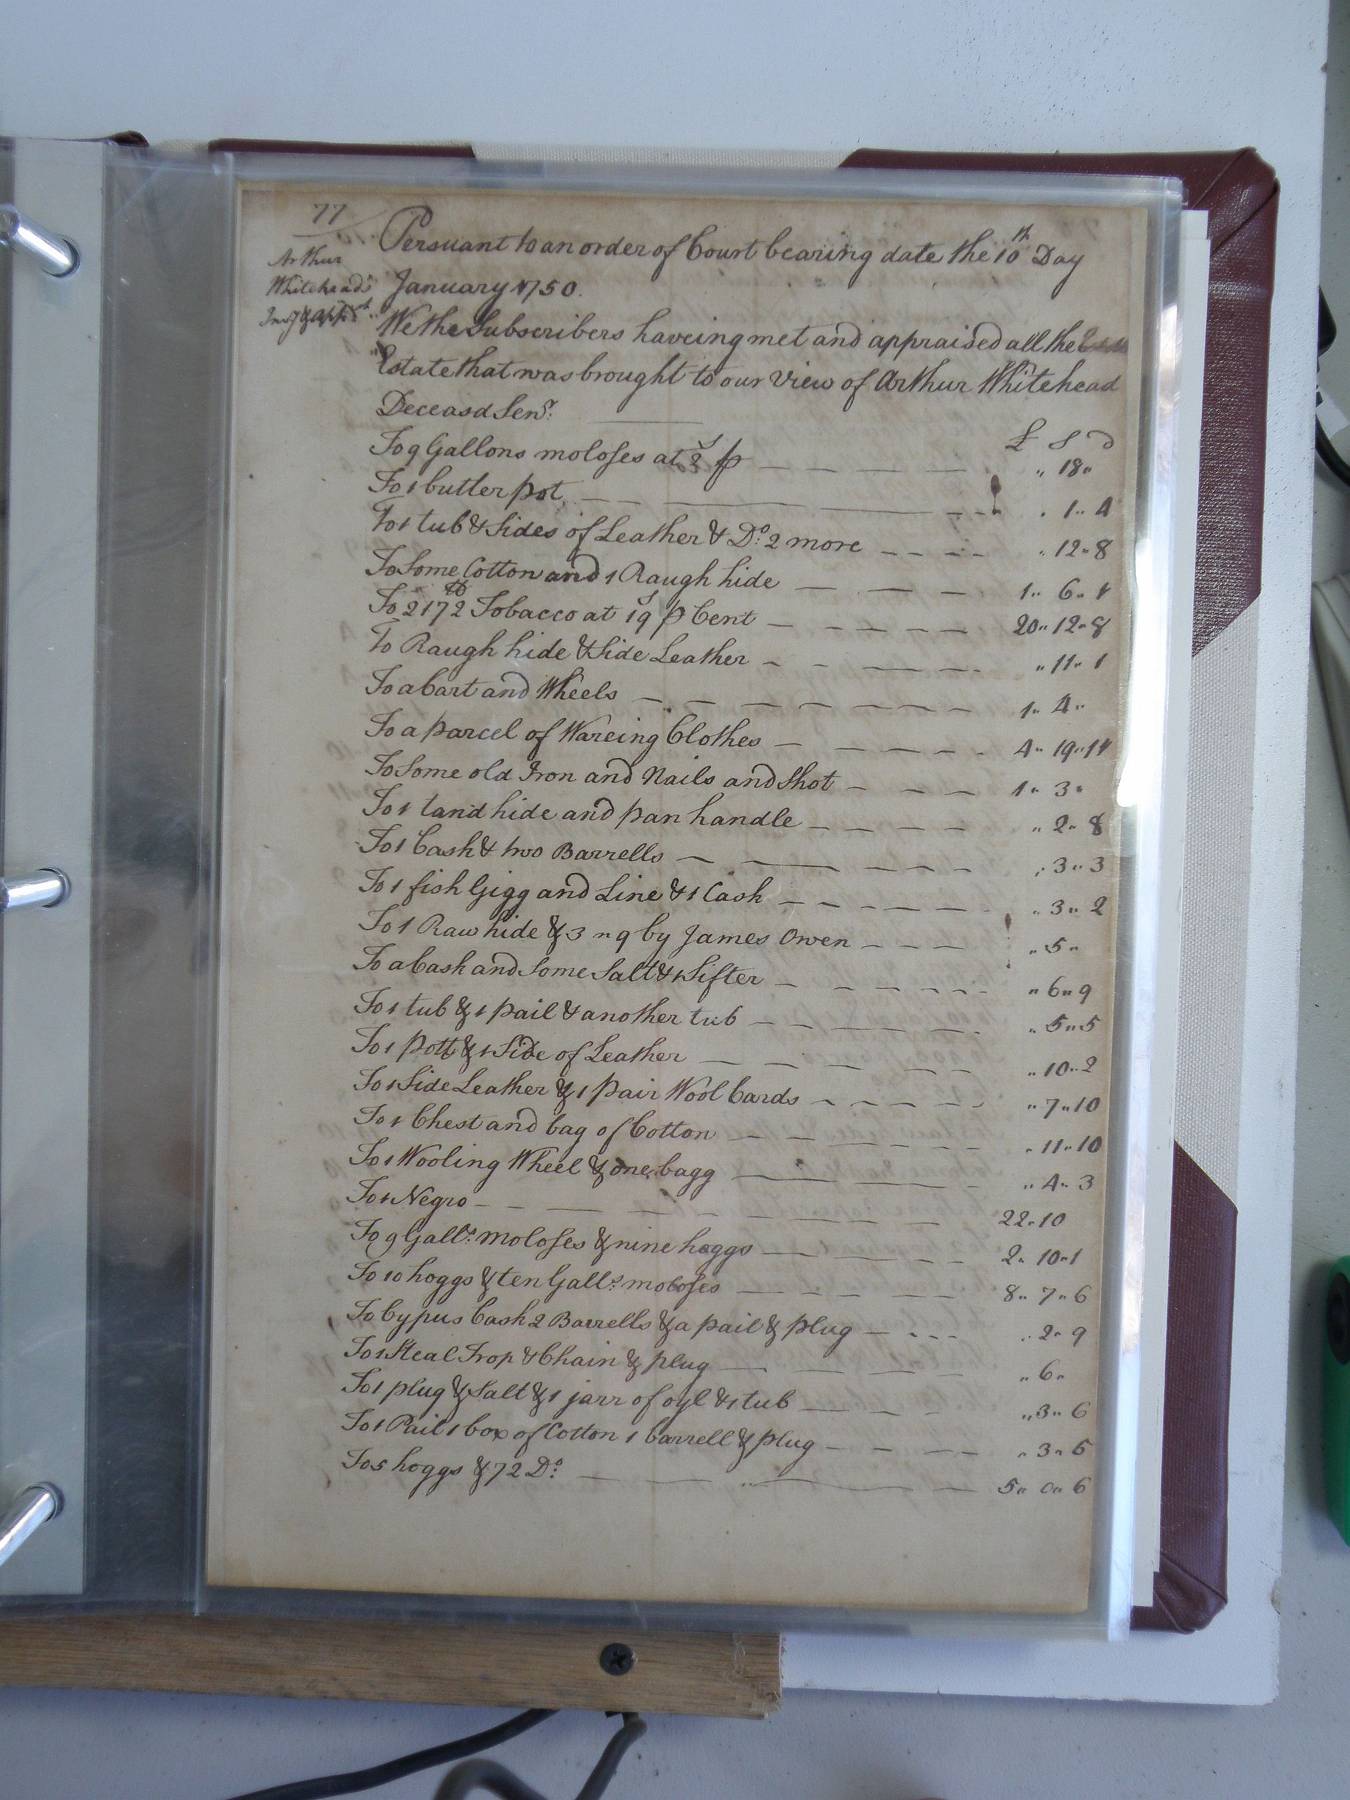 77
Arthur
Whitehead's
Persuant to an order of Court bearing date the 10th Day
January 1750.
We the Subscribers haveing met and appraised all the
Estate that was brought to our View of Arthur Whitehead
Deceasd Senr.
£ S D
To 9 Gallons moloses at 2/ p — — — — „ 18 „
To 1 butter pot — — — — „ 1 „ 4
To 1 tub & Sides of Leather & Do. 2 more — — — — „ 12 „ 8
To Some Cotton and 1 Raugh hide — — — — 1 „ 6 „ 1
To 2172 lb Tobacco at 19/ p Cent — — — — 20 „ 12 „ 8
To Raugh hide & Side Leather — — — — „ 11 „ 1
To a Cart and Wheels — — — — 1 „ 4 „
To a parcel of Wareing Clothes — — — — 4 „ 19 „ 11
To Some old Iron and Nails and Shot — — — — 1 „ 3 „
To 1 tand hide and pan handle — — — — „ 2 „ 8
To 1 Cash & two Barrells — — — — „ 3 „ 3
To 1 fish Gigg and Line & 1 Cash — — — — „ 3 „ 2
To 1 Raw hide & 3 „ 9 by James Owen — — — „ 5 „
To a Cash and Some Salt & 1 Sifter — — — — „ 6 „ 9
To 1 tub & 1 pail & another tub — — — — „ 5 „ 5
To 1 Pott & 1 Side of Leather — — — — „ 10 „ 2
To 1 Side Leather & 1 pair Wool Cards — — — — „ 7 „ 10
To 1 Chest and bag of Cotton — — — — „ 11 „ 10
To 1 Wooling Wheel & one bagg — — — — „ 4 „ 3
To 1 Negro — — — — 22 „ 10
To 9 Galls. moloses & nine hoggs — — — — 2 „ 10 „ 1
To 10 hoggs & ten Galls. moloses — — — — 8 „ 7 „ 6
To Cypus Cash 2 Barrells & a pail & plug — — — — „ 2 „ 9
To 1 Steal Trap & Chain & plug — — — — „ 6 „
To 1 plug & Salt & 1 jarr of oyl & 1 tub — — — — „ 3 „ 6
To 1 Pail 1 box of Cotton 1 barrell & plug — — — — „ 3 „ 5
To 5 hoggs & 72 Do. — — — — 5 „ 0 „ 6